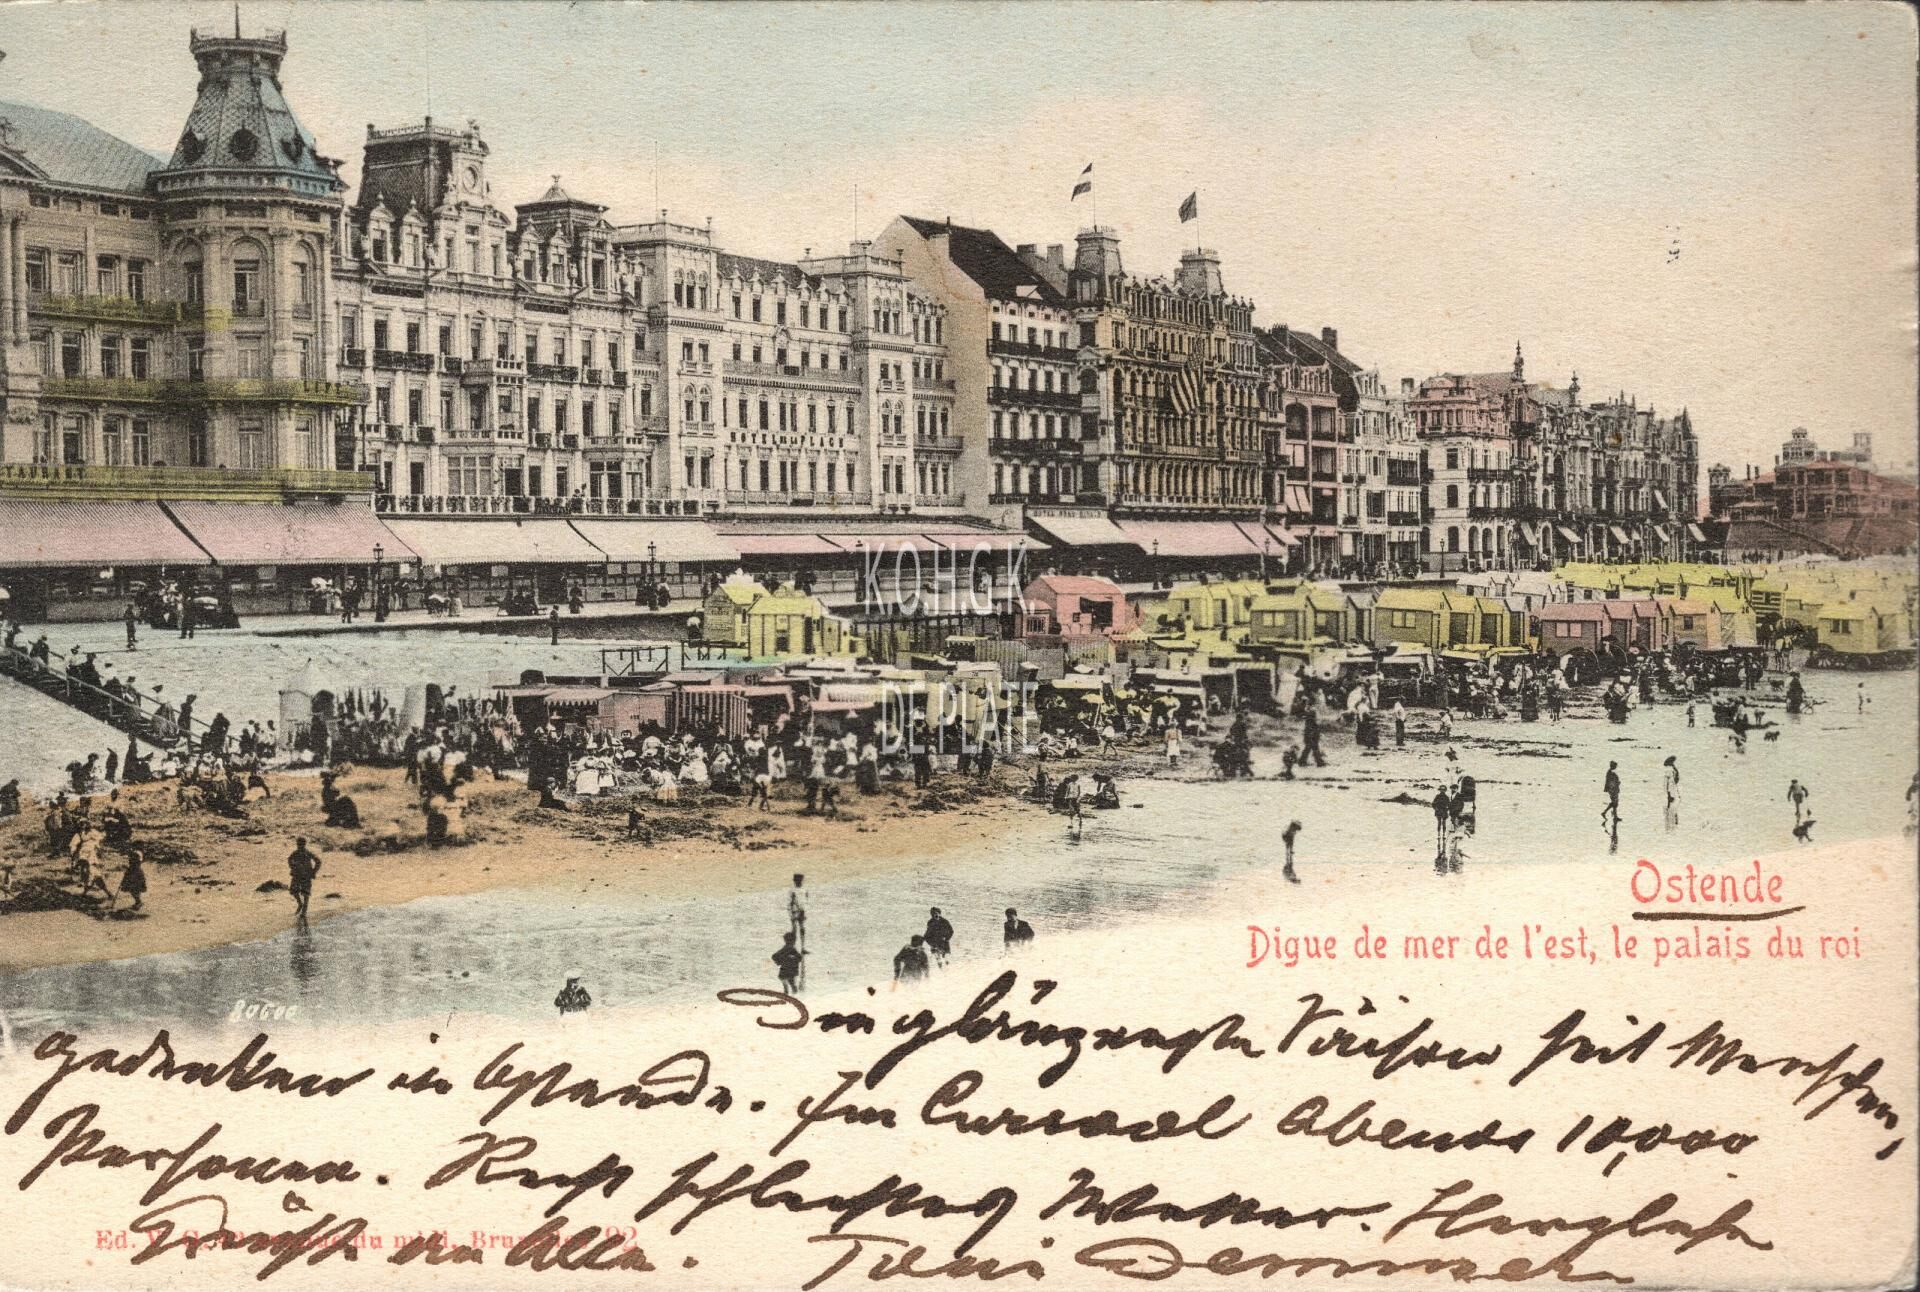 TAURANT
HOTEL DE LA PLAGE
K.O.H.G.K.
DE PLATE
Ostende
Digue de mer de l'est, le palais du roi
80600
Die glänzendste Saison seit Menschen,
gedenken in Ostende. Im Cursaal Abends 10,000
Personen. Recht schlechtes Wetter. Herzliche
Grüße an Alle. Toni Demmer
Ed. V. G. du midi, Bruxelles 92